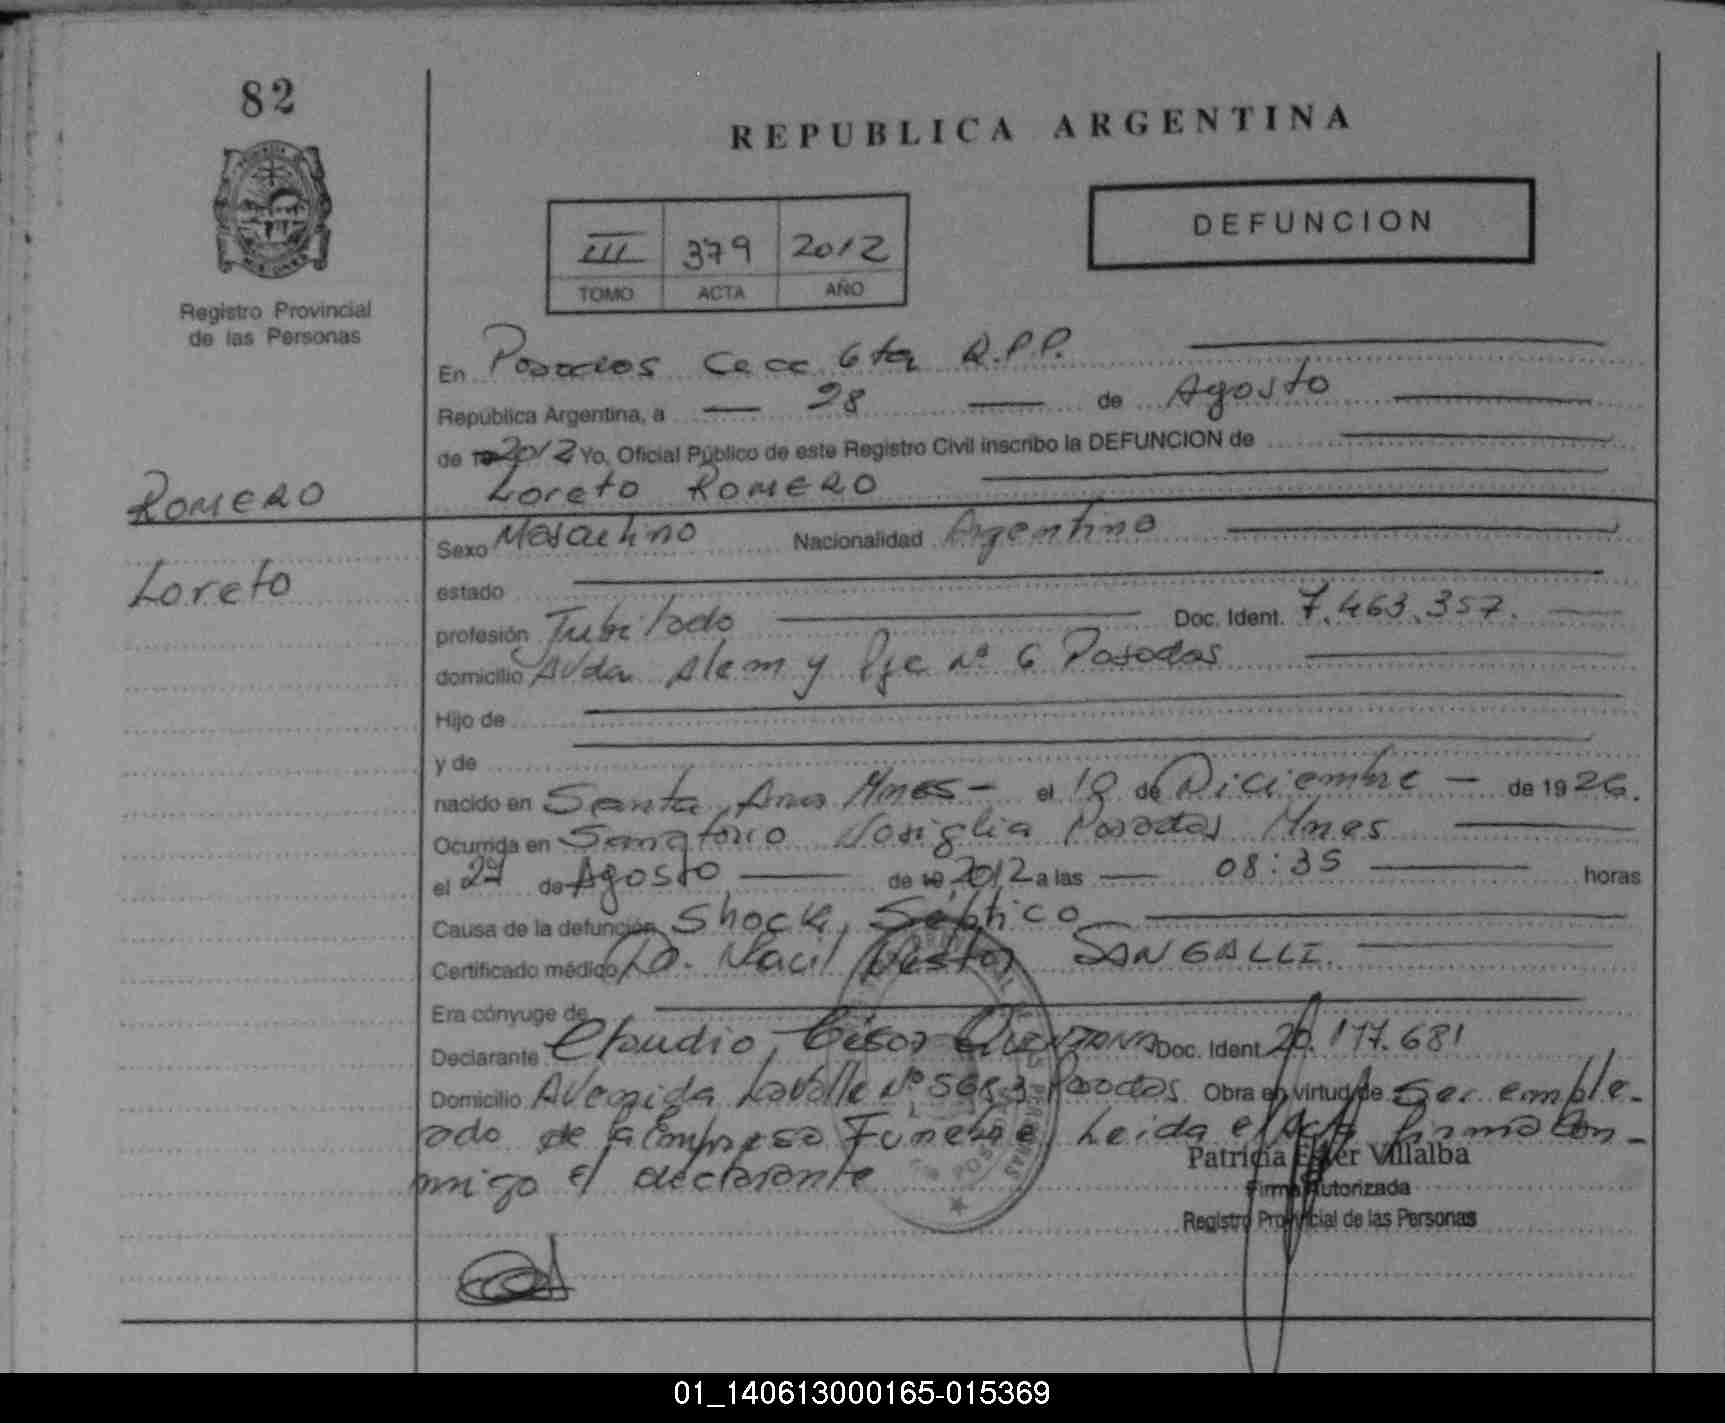 82
REPUBLICA ARGENTINA
DEFUNCION
III 379 2012
TOMO ACTA AÑO
Registro Provincial
de las Personas
En Posadas Secc 6ta R.P.P.
República Argentina, a 28 de Agosto
de 19 2012 Yo, Oficial Público de este Registro Civil inscribo la DEFUNCION de
Loreto ROMERO
ROMERO
Loreto
Sexo Masculino Nacionalidad Argentina
estado
profesión Jubilado Doc. Ident. 7.463.357.
domicilio Avda Alem y Pje Nº 6 Posadas
Hijo de
y de
nacido en Santa Ana Mnes - el 10 de Diciembre - de 1926.
Ocurrida en Sanatorio Nosiglia Posadas Mnes
el 27 de Agosto de 19 2012 a las 08:35 horas
Causa de la defunción Shock Séptico
Certificado médico Dr. Nacil Nestor SANGALLI.
Era cónyuge de
Declarante Claudio César Doc. Ident 20.177.681
Domicilio Avenida Lavalle Nº 5683 Posadas Obra en virtud de Ser emple-
ado de la Empresa Funebre, Leida el Acta firma con-
migo el declarante
Patricia Ester Villalba
Firma Autorizada
Registro Provincial de las Personas
01_140613000165-015369